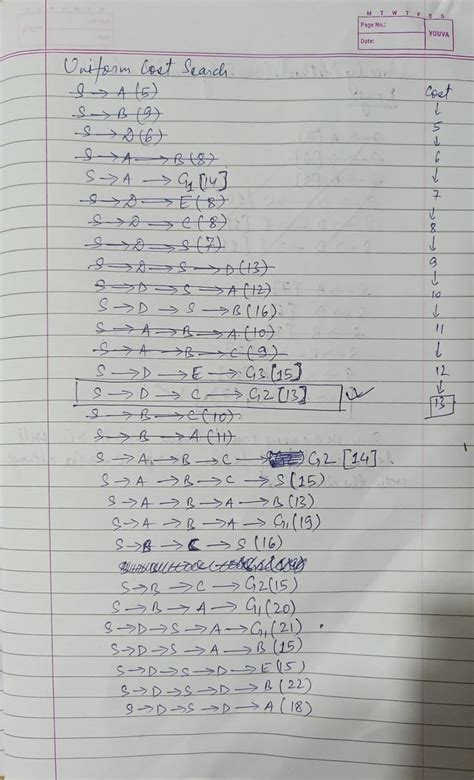 M T W T F S S
Page No.:
Date:
YOUVA
Uniform Cost Search.
Cost
S → A (5)
S → B (9)
S → D (6)
S → A → B (8)
S → A → G1 [14]
S → D → E (8)
S → D → C (8)
S → D → S (7)
S → D → S → D (13)
S → D → S → A (12)
S → D → S → B (16)
S → A → B → A (10)
S → A → B → C (9)
S → D → E → G3 [15]
S → D → C → G2 [13]
S → B → C (10)
S → B → A (11)
S → A → B → C → G2 [14].
S → A → B → C → S (15)
S → A → B → A → B (13)
S → A → B → A → G1 (19)
S → B → C → S (16)
S → B → C → G2 (15)
S → B → A → G1 (20)
S → D → S → A → G1 (21)
S → D → S → A → B (15)
S → D → S → D → E (15)
S → D → S → D → B (22)
S → D → S → D → A (18)
↓
5
↓
6
↓
7
↓
8
↓
9
↓
10
↓
11
↓
12
↓
13